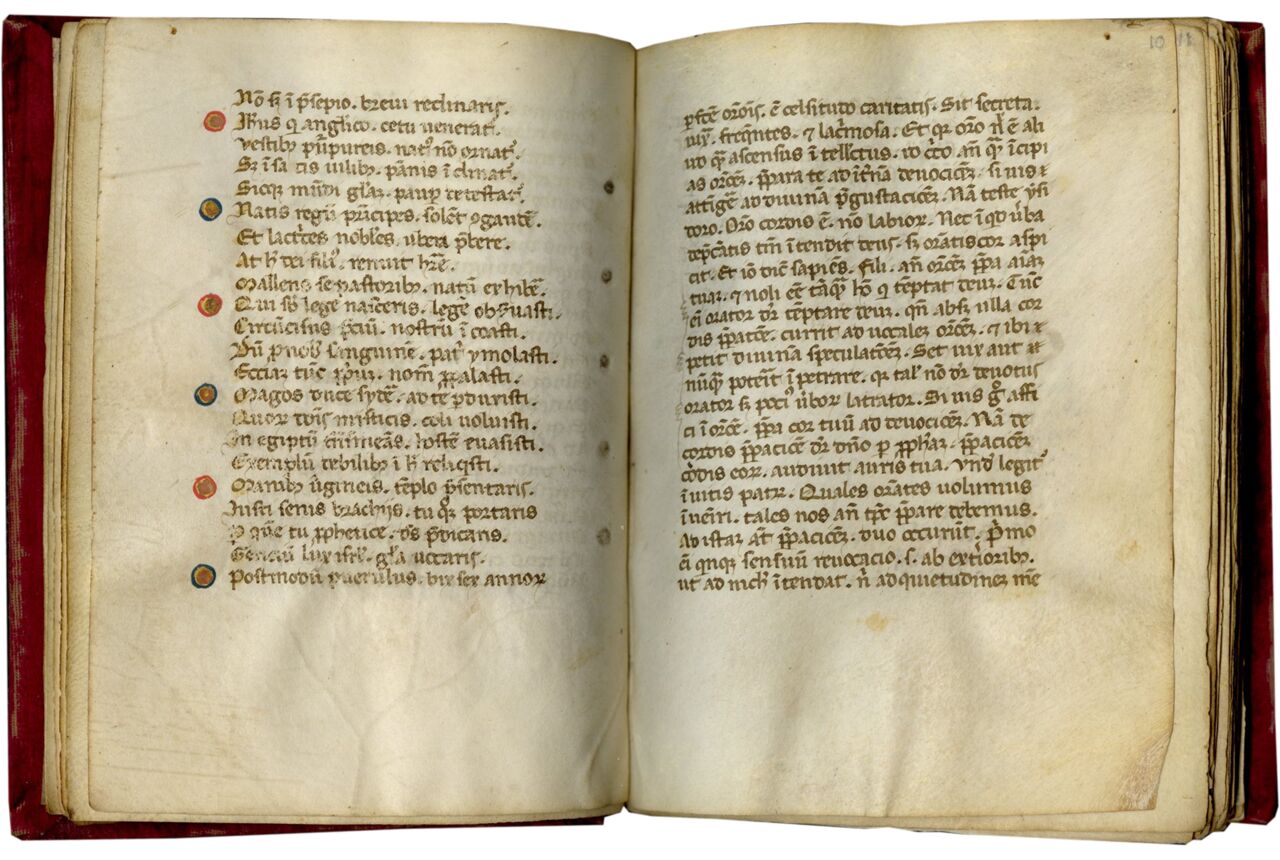 Nō sʒ ī p̄sepio. breui reclinaris.
Ihūs q anglico. cetu ueneratᷣ.
Vestibꝫ purpureis. natꝰ nō ornatᷣ.
Sʒ ī sa cis uilibꝫ. pānis ī
Sicqꝫ mūdi gl̄az. paupᷣ detestatᷣ.
Natis regū prīcipes. solēt
Et lactētes nobiles. ubera p̄bere.
At h̄ dei filiꝰ. renuit h̄re.
Mallens se pastoribꝫ. natū exhibē.
Qui sb̄ lege nasceris. legē obs̄uasti.
Circūcisus p̄ciū. nostrū ī coasti.
Dū ꝓ nobꝭ sanguinē. patᷣ ymolasti.
Ecciāz tūc nom̄ ꝓpalasti.
Magos duce sydē. ad te ꝑduxisti.
Quoꝝ dōis misticis. coli uoluisti.
In egiptū hostē euasisti.
Exemplū debilibꝫ ī h̄ reliq̄sti.
Manibꝫ ūgineis. tēplo p̄sentaris.
Iusti senis brachijs. tu qꝫ portaris
P quē tu ꝓphetice. dn̄s p̄dicaris.
Genciū lux isrl̄. gl̄a uocaris.
Postmodū puerulus. bix sex annoꝝ
10 11
ꝑfcē orōis. ē celsitudo caritatis. Sit secreta.
frequētes. ⁊ lacrīosa. Et qꝛ orō n̄ ē ali
ud qᷓ ascensus ī tellectus. iō añ qᷓ īcipi
as orōeꝫ. p̄para te ad ītʳnā deuocioēꝫ. si uis
attīgē ad diuinā p̄gustacioēꝫ. Nā teste ysi
doro. Orō cordis ē. nō labioꝝ. Nec ī qd̄ ūba
dep̄cātis tm̄ ītendit deus. sʒ orātis cor aspi
cit. Et iō dic̄ sapiēs. fili. añ orōeꝫ p̄pa aīaꝫ
tuaꝫ. ⁊ noli eē tāqᷓ hō q̄ tēptat deuꝫ.
eī orator dr̄ tēptare deuꝫ. qn̄ absqꝫ ulla cor
dis p̄patōe. currit ad uocaleꝫ orōeꝫ. ⁊ ibi
petit diuinā speculatōeꝫ. Set uix aut
nūqᷓ potērit īpetrare. qꝛ talꝭ nō dr̄ deuotus
orator sʒ pociꝰ ūboꝝ latrator. Si uis gᷓ affi
ci ī orōe. p̄pa cor tuū ad deuocioēꝫ. Nā de
cordis p̄pacioē dr̄ dño ꝑ ꝓphāꝫ. p̄pacioēꝫ
cordis eoꝝ. audiuit auris tua. Vn̄ legitᷣ
ī uitis patꝝ. Quales orātes uolumus
īueīri. tales nos añ tp̄c p̄pare debemus.
Ad istaꝫ at̄ p̄pacioēꝫ. duo occurūt. P̄mo
eī qnqꝫ sensuū reuocacio. s. ab extioribꝫ.
ut ad nich̄ ītendat. n̄ ad quietudineꝫ mē